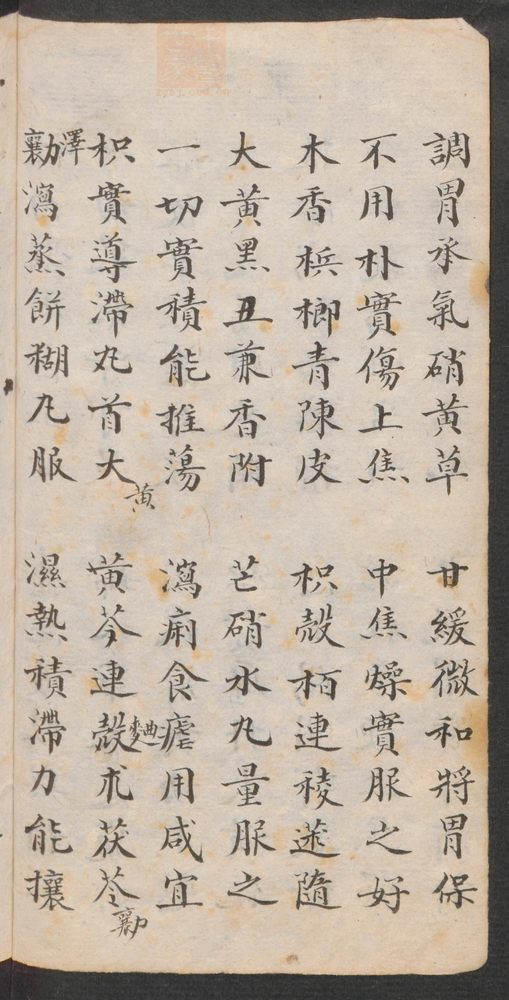 調胃承氣硝黃草 甘緩微和將胃保
不用朴實傷上焦 中焦燥實服之好
木香梹榔青陳皮 枳殼栢連稜蒁隨
大黃黑丑兼香附 芒硝水丸量服之
一切實積能推蕩 瀉痢食瘧用咸宜
枳實導滯丸首大黃 黃芩連殼麯朮茯苓勷
澤勷瀉蒸餅糊丸服 濕熱積滯力能攘